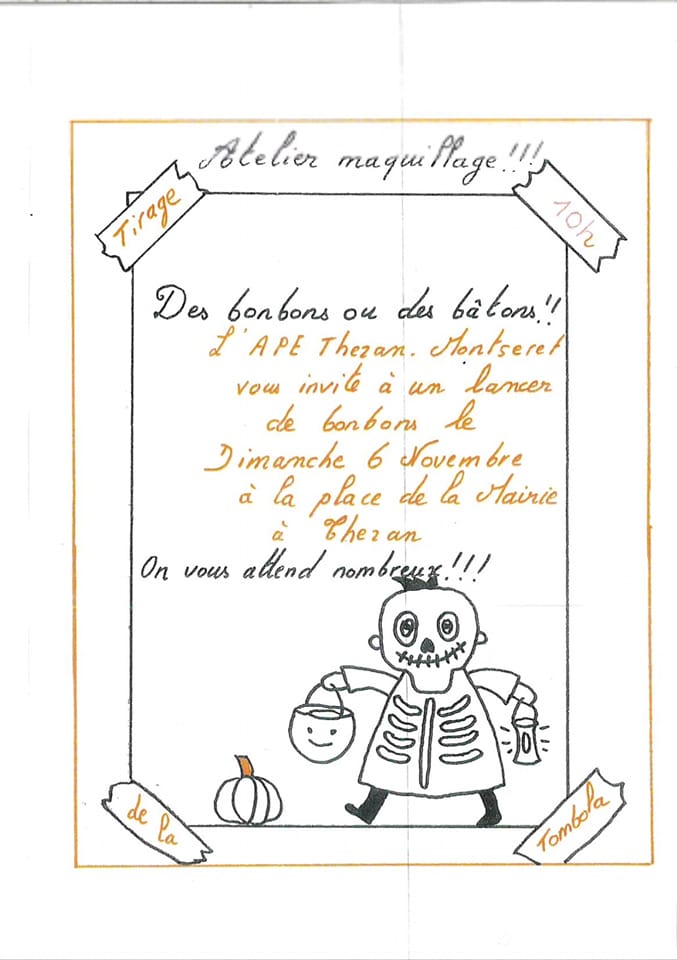 Atelier maquillage!!!
Tirage
10h
Des bonbons ou des bâtons!!
L'APE Thezan. Montseret
vous invite à un lancer
de bonbons le
Dimanche 6 Novembre
à la place de la Mairie
à Thezan
On vous attend nombreux!!!
de la
Tombola